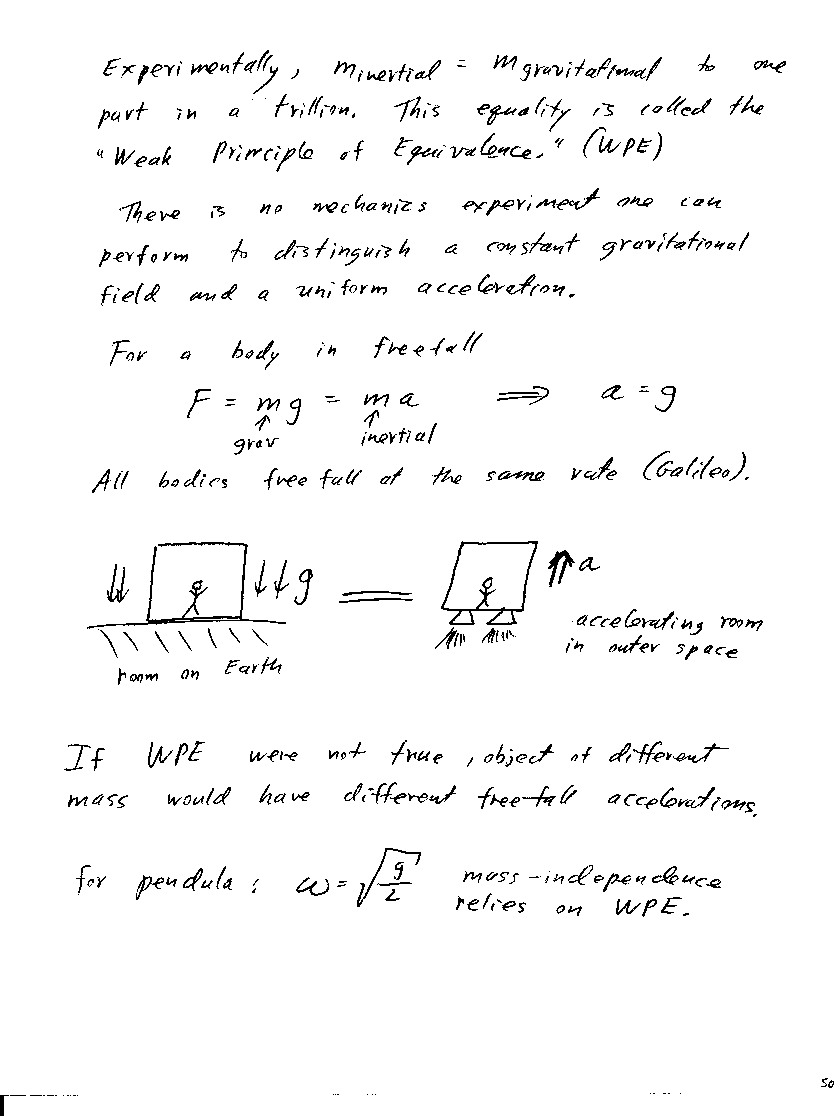 Experimentally, m inertial = m gravitational to one
part in a trillion. This equality is called the
"Weak Principle of Equivalence." (WPE)
There is no mechanics experiment one can
perform to distinguish a constant gravitational
field and a uniform acceleration.
For a body in freefall
F = mg = ma ⟹ a = g
↑ ↑
grav inertial
All bodies free fall at the same rate (Galileo).
↓↓ ↓↓g = ⇑a
accelerating room
in outer space
room on Earth
If WPE were not true, object of different
mass would have different free-fall accelerations.
for pendula: ω = √(g/L) mass-independence
relies on WPE.
50